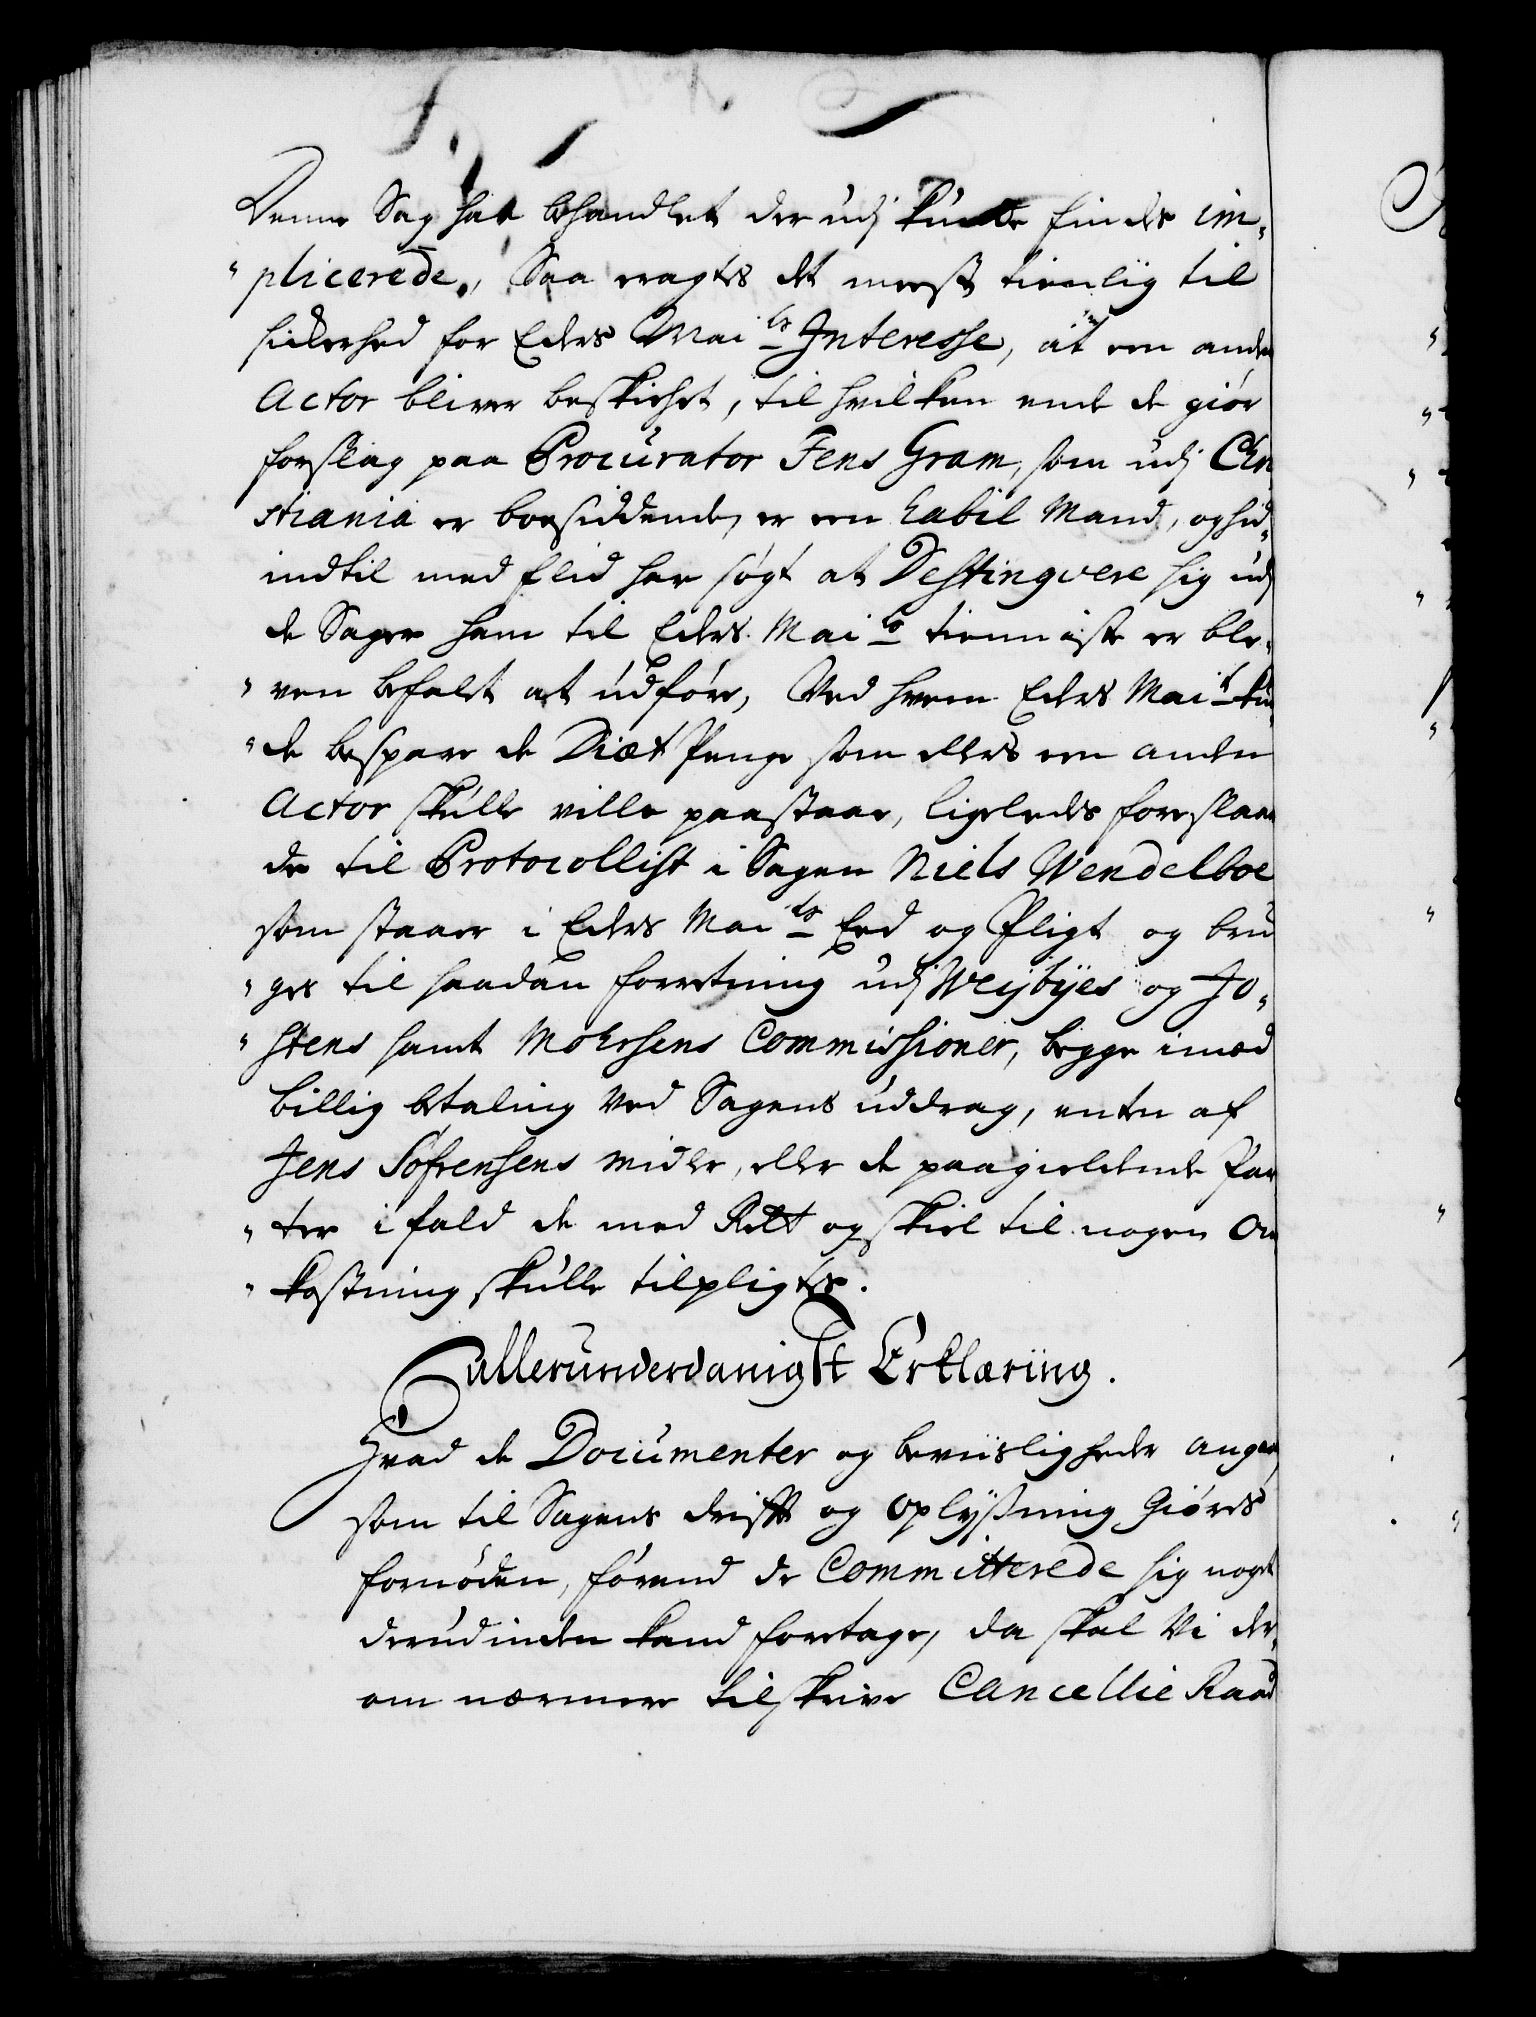 Denne Sag har behandlet der udj kunde findes im„
„plicerede, Saa eragtes det meest tienlig til
sikerhed for Eders Mai ts Interesse, at een anden
Actor bliver beskicket, til hvilken ende de giør
forslag paa Procurator Jens Gram, som udj Chri
stiania er boesiddende, er een habil Mand, og hid„
indtil med flid har søgt at Destingvere sig udj
de Sager ham til Eders Mai ts tienniste er ble„
„ven befalet at udføre, Ved hvem Eders Mai t kun„
„de bespare de Diæt Penge som ellers een anden
Actor skulle ville paastaae, ligeledes foreslaae
de til Protocollist i Sagen Niels Wendelboe
som staaer i Eders Mai ts Eed og Pligt og bru
„ges til saadan forretning udj Weijbÿes og Jo„
„stens samt Mohrsens Commissioner, begge imod
billig betaling ved Sagens uddrag, enten af
Jens Søfrensens midler, eller de paagieldende Par
„ter i fald de med Rett og skiel til nogen Om
„kostning skulle tilpligtes.
Allerunderdanigst Erklæring.
Hvad de Documenter og beviisligheder angaaer,
som til Sagens drifft og Oplysning giøres
fornøden, førend de Committerede sig noget
derudinden kand foretage, da skal Vi der„
om nærmere tilskrive Cancellie Raad